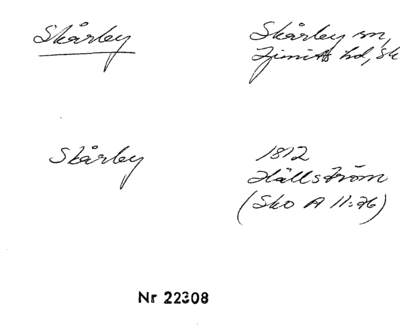 Skårby
Skårby sn,
Ljunits hd, Sk
Skårby
1812
Hällström
(Sko A 11:26)
Nr 22308